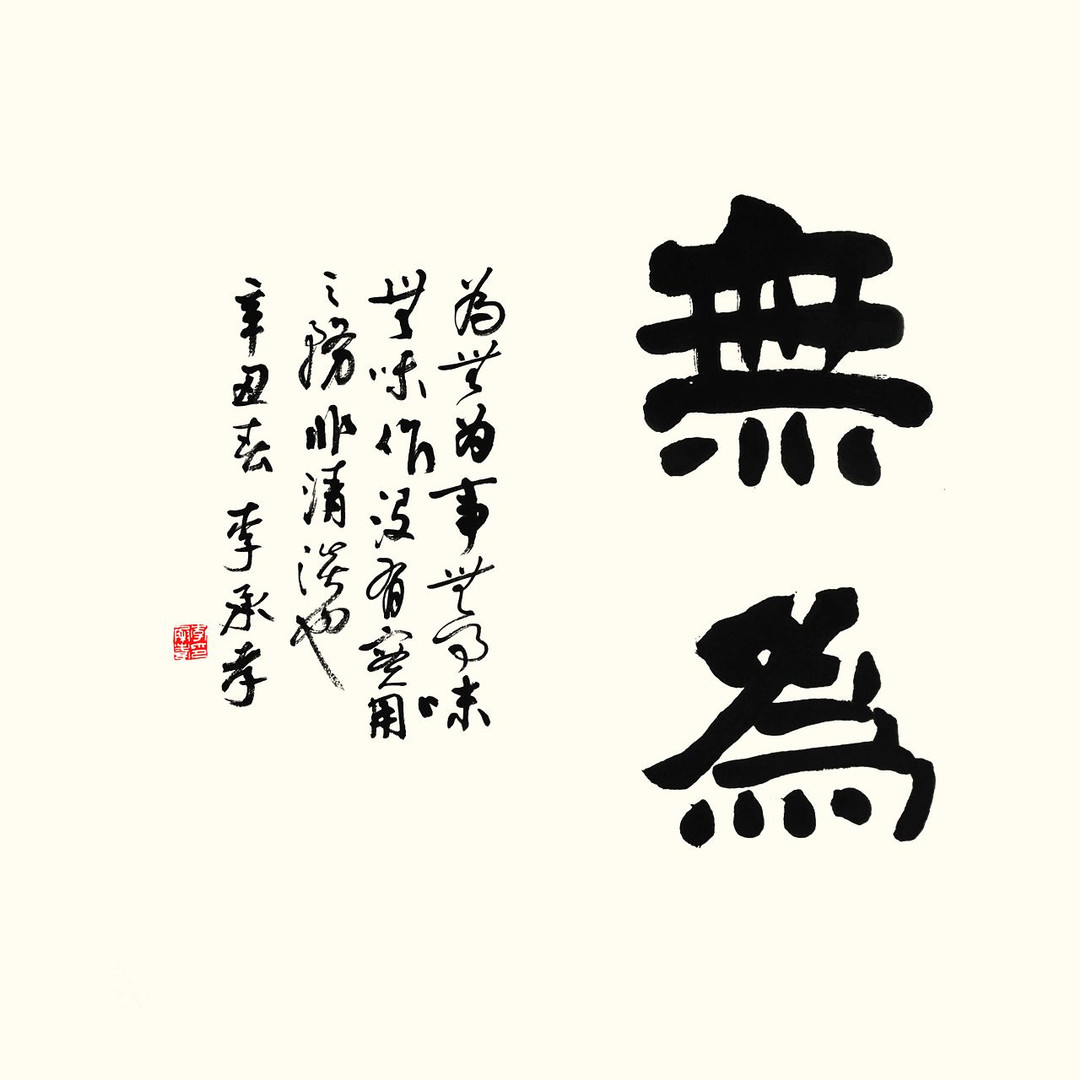 無為
為無為事無事味
無味作没有實用
之務非清淡也
辛丑春 李承孝